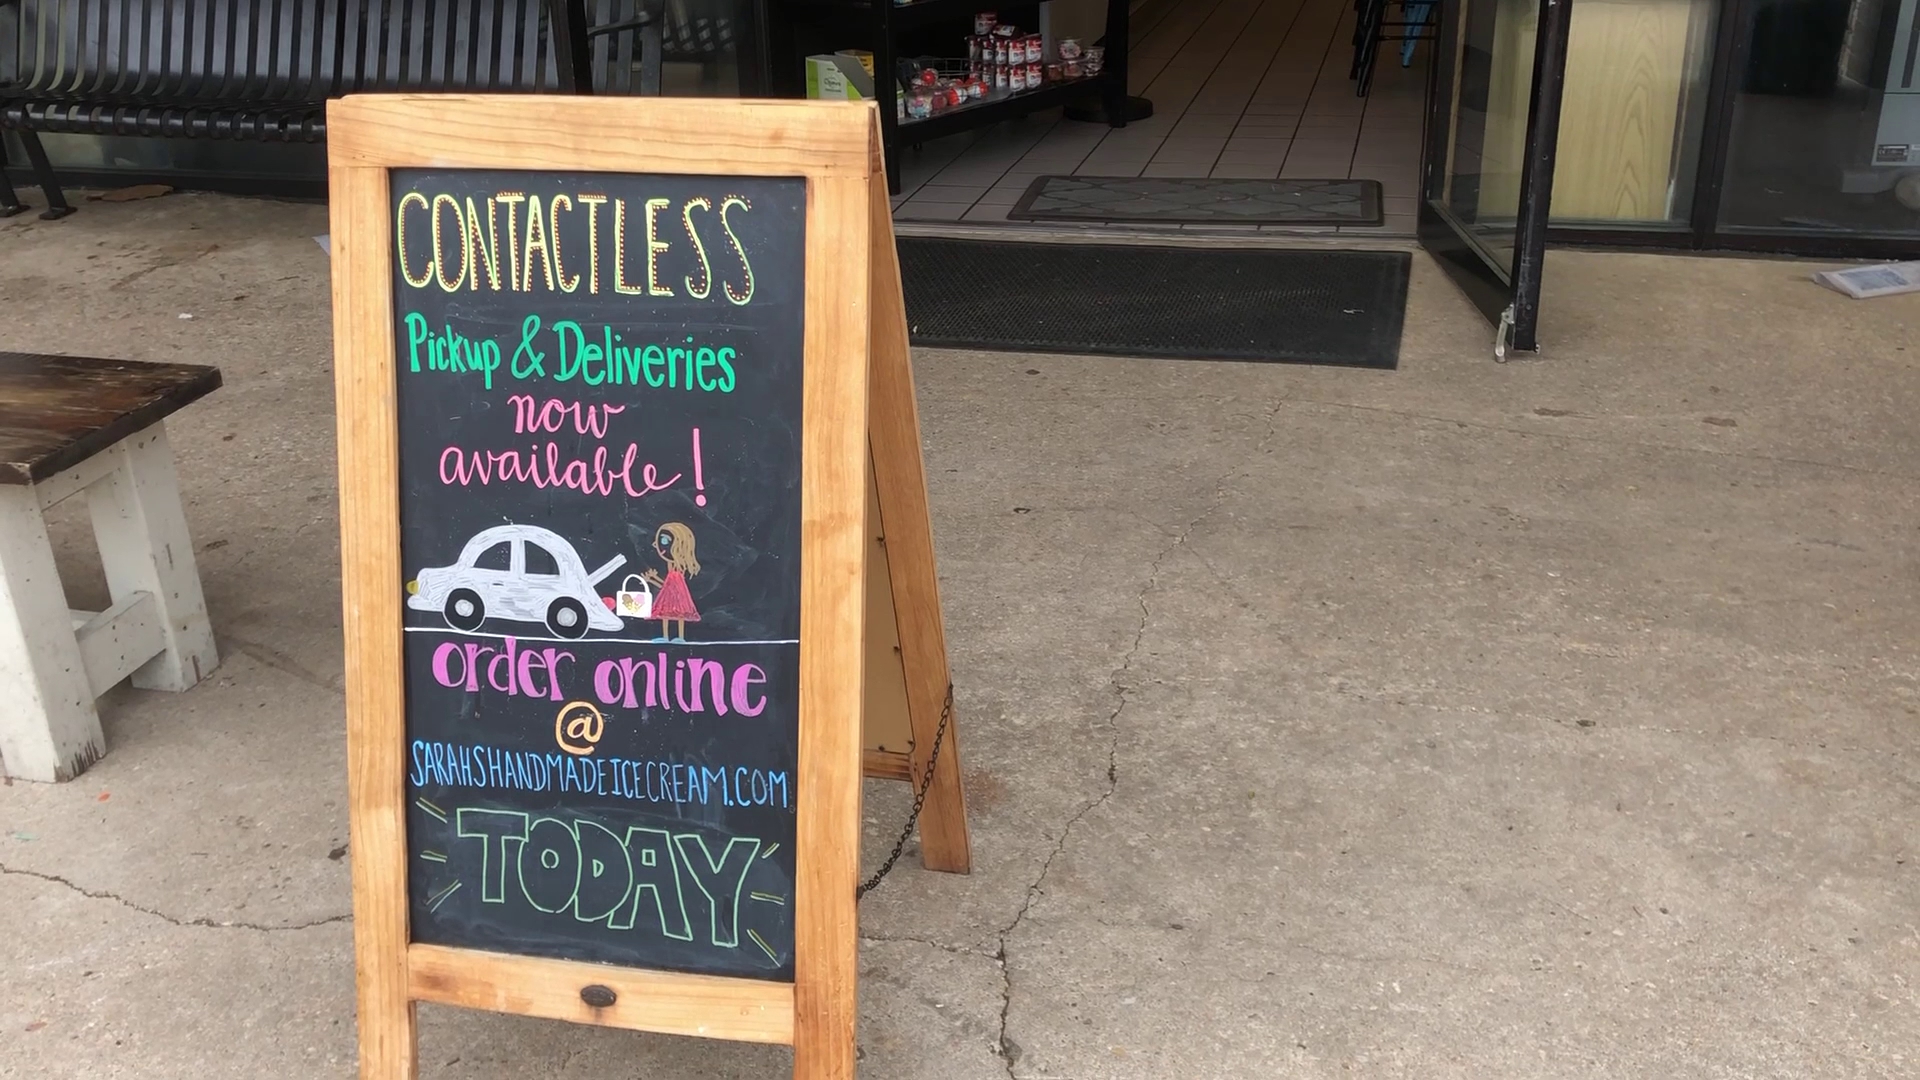 CONTACTLESS
Pickup & Deliveries
now
available!
order online
@
SARAHSHANDMADEICECREAM.COM
TODAY